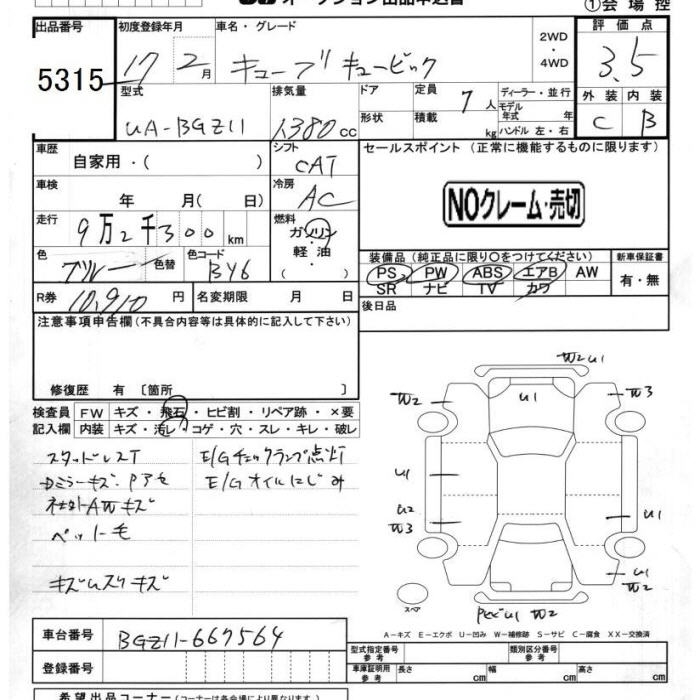 オークション出品申込書
①会場控
出品番号 初度登録年月 車名・グレード 2WD・4WD 評価点
5315 17 2月 キューブ キュービック 3.5
型式 排気量 ドア 定員 7人 ディーラー・並行 外装 内装
UA-BGZ11 1380cc 形状 積載 kg モデル年式 年 ハンドル 左・右 C B
車歴 自家用・( ) シフト CAT セールスポイント (正常に機能するものに限ります)
車検 年 月( 日) 冷房 AC NOクレーム・売切
走行 9万2千300km 燃料 ガソリン・軽油・( )
色 ブルー 色替 色コード BY6 装備品 (純正品に限り○をつけてください) 新車保証書
PS PW ABS エアB AW 有・無
SR ナビ TV カワ
R券 10,910円 名変期限 月 日 後日品
注意事項申告欄 (不具合内容等は具体的に記入して下さい)
修復歴 有 [箇所 ]
検査員 FW キズ・飛石・ヒビ割・リペア跡・×要
記入欄 内装 キズ・汚レ・コゲ・穴・スレ・キレ・破レ
スタッドレスT E/Gチェックランプ点灯
E/Gオイルにじみ
ペット毛
キズムスリキズ
W2 U1
W2 U1 W3
U1
U2
W3 U1
U1
W2
スペア U1 W2
A-キズ E-エクボ U-凹み W-補修跡 S-サビ C-腐食 XX-交換済
車台番号 BGZ11-667564 型式指定番号 参考 類別区分番号 参考
登録番号 車庫証明用 参考 長さ cm 幅 cm 高さ cm
希望出品コーナー (コーナーは各会場により異なります。)